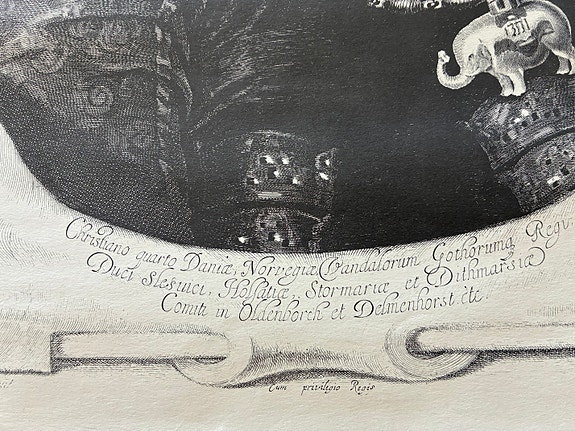 Christiano quarto Daniæ, Norvegiæ Vandalorum Gothorumq Regi.
Duci Slesvici, Holsatiæ, Stormariæ et Dithmarsiæ
Comiti in Oldenborch et Delmenhorst. etc.
Cum privilegio Regis